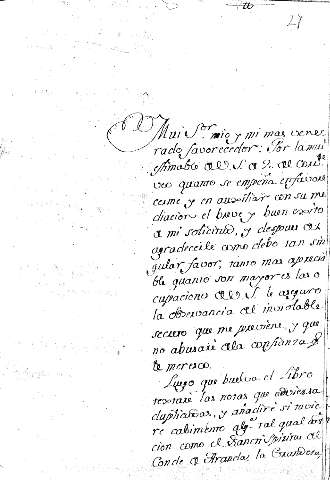 27
Mui S.or mio y mi mas vene
rado favorecedor: Por la mui
estimable de V. S. de 2. del
veo quanto se empeña en favore
cerme y en auxiliar con su me
diacion el breve y buen exito
a mi solicitud, y despues de
agradecerle como debo tan sin
gular favor, tanto mas aprecia
ble quanto son mayores las o
cupaciones de V. S. le aseguro
la observancia del inviolable
secreto que me previene, y que
no abusaré de la confianza q.
le merezco.
Luego que buelva el Libro
las notas que
duplicadas, y añadiré si tuvie
re cabimento alg.a tal qual
cion como el
Conde de Aranda, la